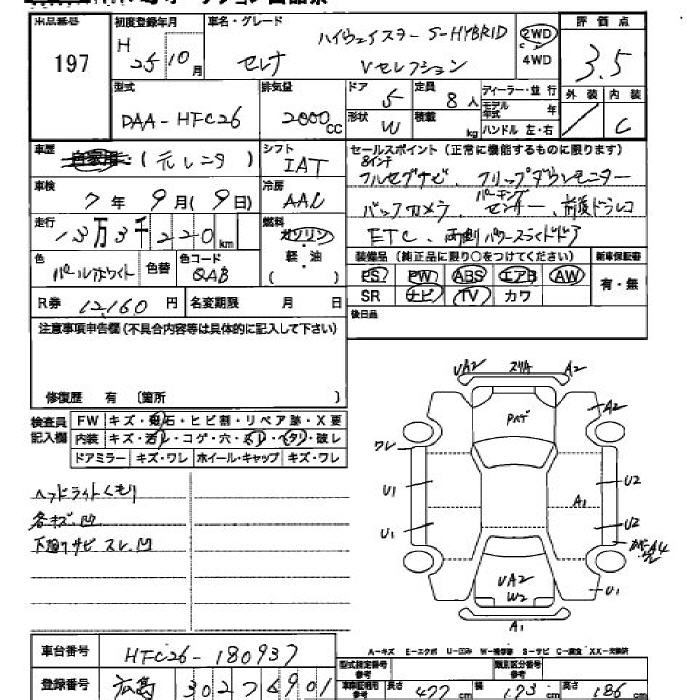 出品番号 初度登録年月 車名・グレード 評価点
197 H 25 10月 セレナ ハイウェイスター S-HYBRID Vセレクション 2WD 4WD 3.5
型式 排気量 ドア 定員 ディーラー・並行 外装 内装
DAA-HFC26 2000cc 5 8人 モデル年式 年 C
形状 W 積載 kg ハンドル 左・右
車歴 自家用 (元レンタ) シフト IAT セールスポイント(正常に機能するものに限ります)
8インチ
フルセグナビ、フリップダウンモニター
車検 7年 9月(9日) 冷房 AAC
バックカメラ パーキングセンサー、前後ドラレコ
走行 13万3千220km 燃料 ガソリン・軽・油 ( )
ETC、両側パワースライドドア
色 パールホワイト 色替 色コード QAB
装備品(純正品に限り○をつけてください) 新車保証書
PS PW ABS エアB AW 有・無
SR ナビ TV カワ
R券 12,160円 名変期限 月 日
後日品
注意事項申告欄(不具合内容等は具体的に記入して下さい)
修復歴 有 〔箇所 〕
検査員記入欄 FW キズ・飛石・ヒビ割・リペア跡・X要
内装 キズ・汚レ・コゲ・穴・スレ・ヘタリ・破レ
ドアミラー キズ・ワレ ホイール・キャップ キズ・ワレ
ヘッドライトくもり
各キズ凹
下廻りサビ スレ、凹
UA2 スリキズ A2
A2
ワレ
U1 A1 U2
U1 U2
A4
UA2
W2
U1
A1
A-キズ E-エクボ U-凹み W-補修跡 S-サビ C-腐食 XX-交換済
車台番号 HFC26-180937
型式指定番号参考 類別区分番号参考
登録番号 広島 302 7 6901
車庫証明用参考 長さ 477cm 幅 173cm 高さ 186cm